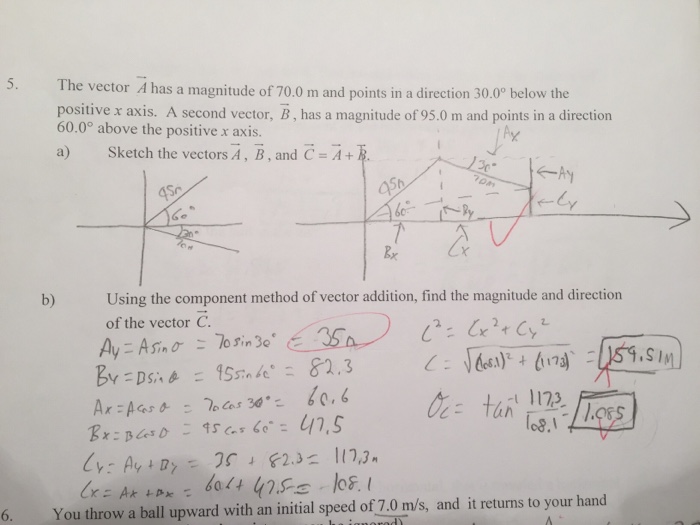 5. The vector A has a magnitude of 70.0 m and points in a direction 30.0° below the
positive x axis. A second vector, B, has a magnitude of 95.0 m and points in a direction
60.0° above the positive x axis.
a) Sketch the vectors A, B, and C = A + B.
Ax
30°
70m
Ay
95m
60°
By
Cy
Bx
Cx
95m
60°
30°
70m
b) Using the component method of vector addition, find the magnitude and direction
of the vector C.
Ay = A sin θ = 70 sin 30° = 35m
By = B sin θ = 95 sin 60° = 82.3
Ax = A cos θ = 70 cos 30° = 60.6
Bx = B cos θ = 95 cos 60° = 47.5
Cy = Ay + By = 35 + 82.3 = 117.3m
Cx = Ax + Bx = 60.6 + 47.5 = 108.1
C² = Cx² + Cy²
C = √(108.1)² + (117.3)² = 159.51m
θc = tan⁻¹ 117.3/108.1 = 1.085
6. You throw a ball upward with an initial speed of 7.0 m/s, and it returns to your hand